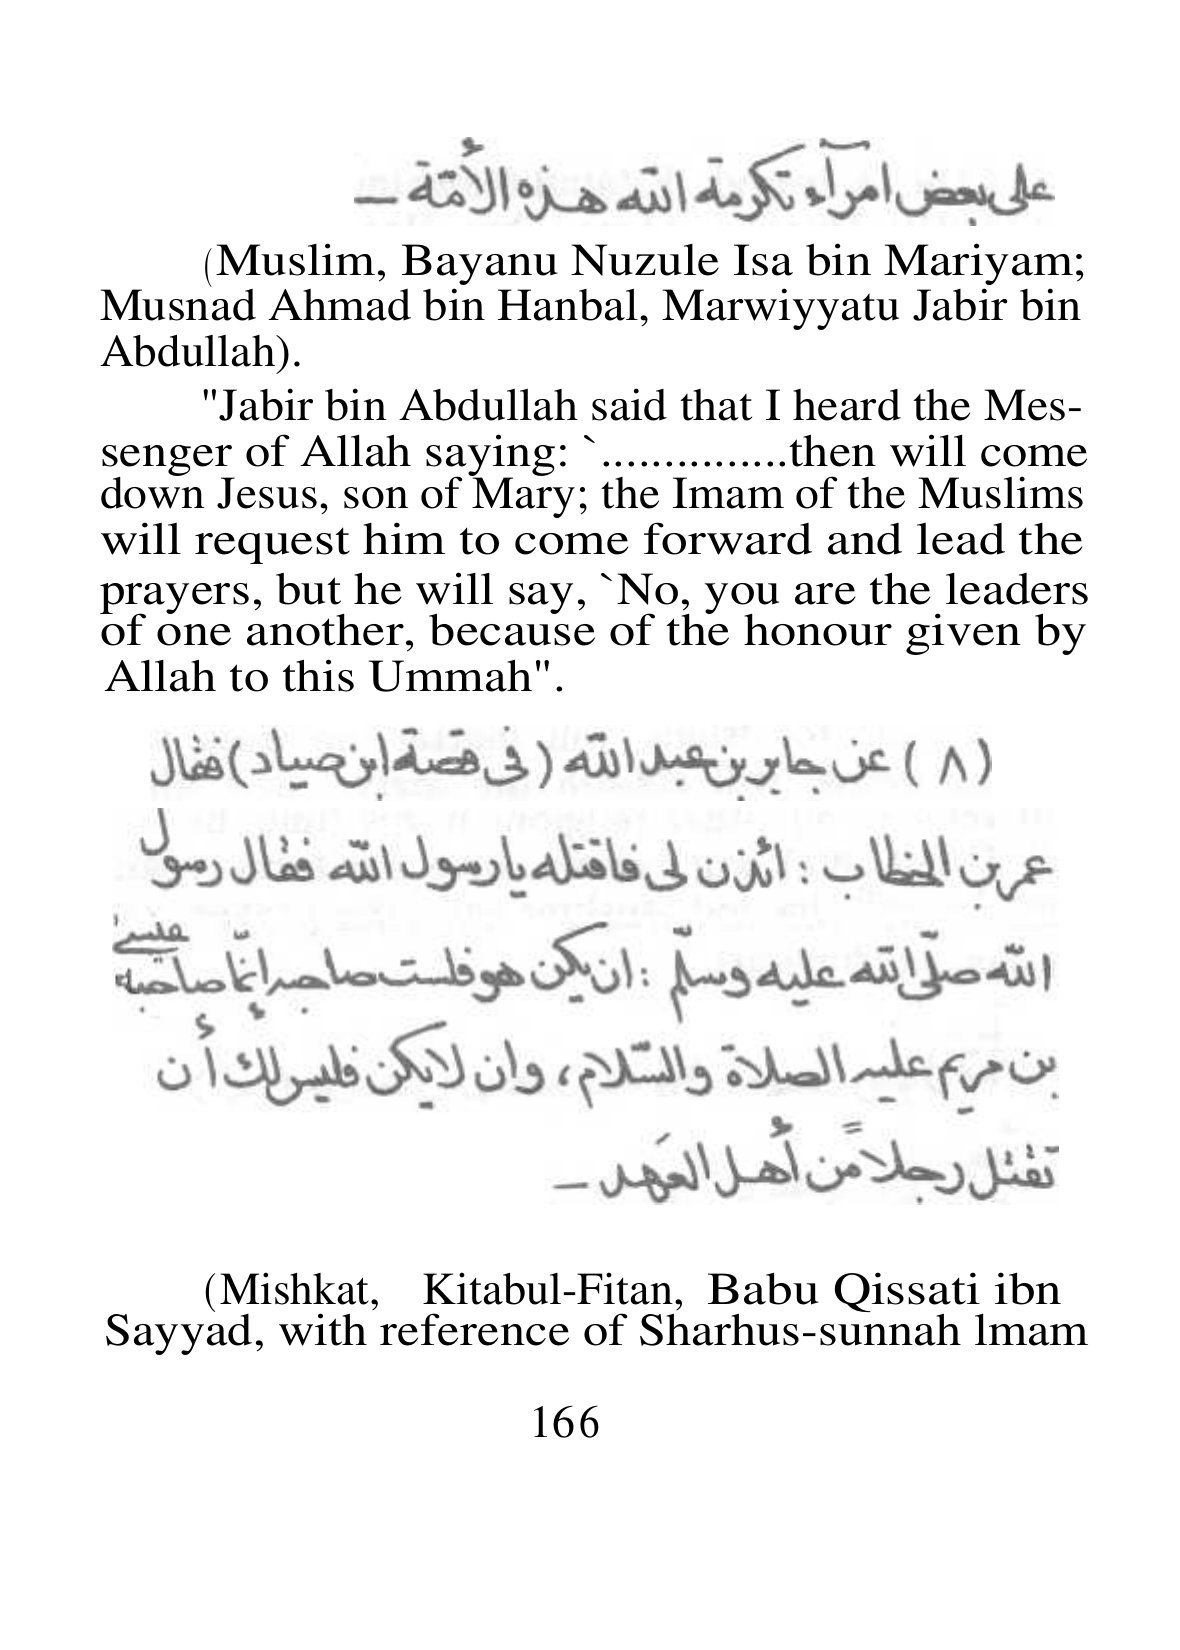 على بعض امرآء تكرمة الله هذه الأمّة ـ
(Muslim, Bayanu Nuzule Isa bin Mariyam;
Musnad Ahmad bin Hanbal, Marwiyyatu Jabir bin
Abdullah).
"Jabir bin Abdullah said that I heard the Mes-
senger of Allah saying: `...............then will come
down Jesus, son of Mary; the Imam of the Muslims
will request him to come forward and lead the
prayers, but he will say, `No, you are the leaders
of one another, because of the honour given by
Allah to this Ummah".
(٨) عن جابر بن عبد الله (فى قصة ابن صياد) فقال
عمر بن الخطاب : ائذن لى فاقتله يا رسول الله فقال رسول
الله صلّى الله عليه وسلّم : ان يكن هو فلست صاحبه إنّما صاحبه عيسىٰ
بن مريم عليه الصلاة والسّلام، وان لا يكن فليس لك أن
تقتل رجلاً من أهل العَهد ـ
(Mishkat, Kitabul-Fitan, Babu Qissati ibn
Sayyad, with reference of Sharhus-sunnah lmam
166